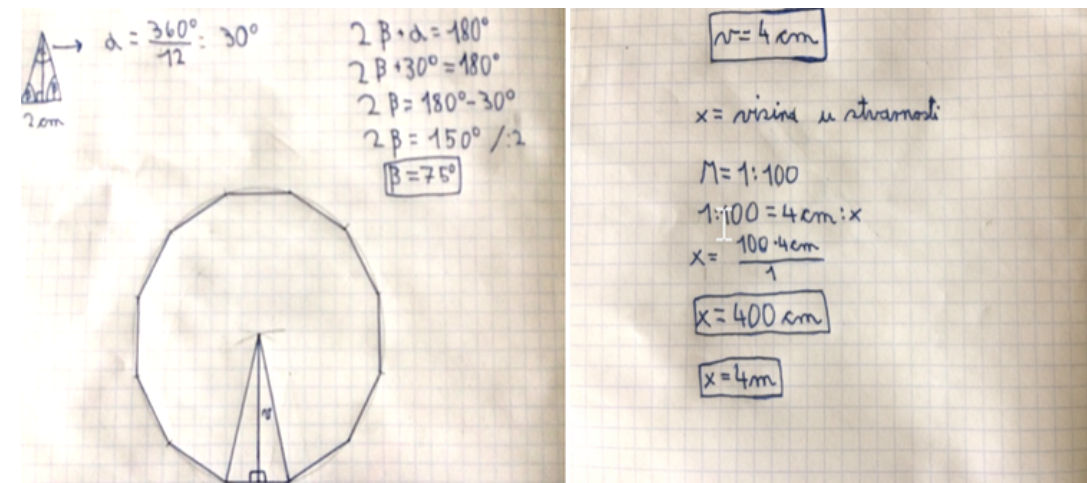 α = 360°/12 = 30°
β β
2 cm
2β + α = 180°
2β + 30° = 180°
2β = 180° - 30°
2β = 150° /:2
β = 75°
v
v = 4 cm
x = visina u stvarnosti
M = 1:100
1:100 = 4 cm : x
x = 100·4cm/1
x = 400 cm
x = 4m